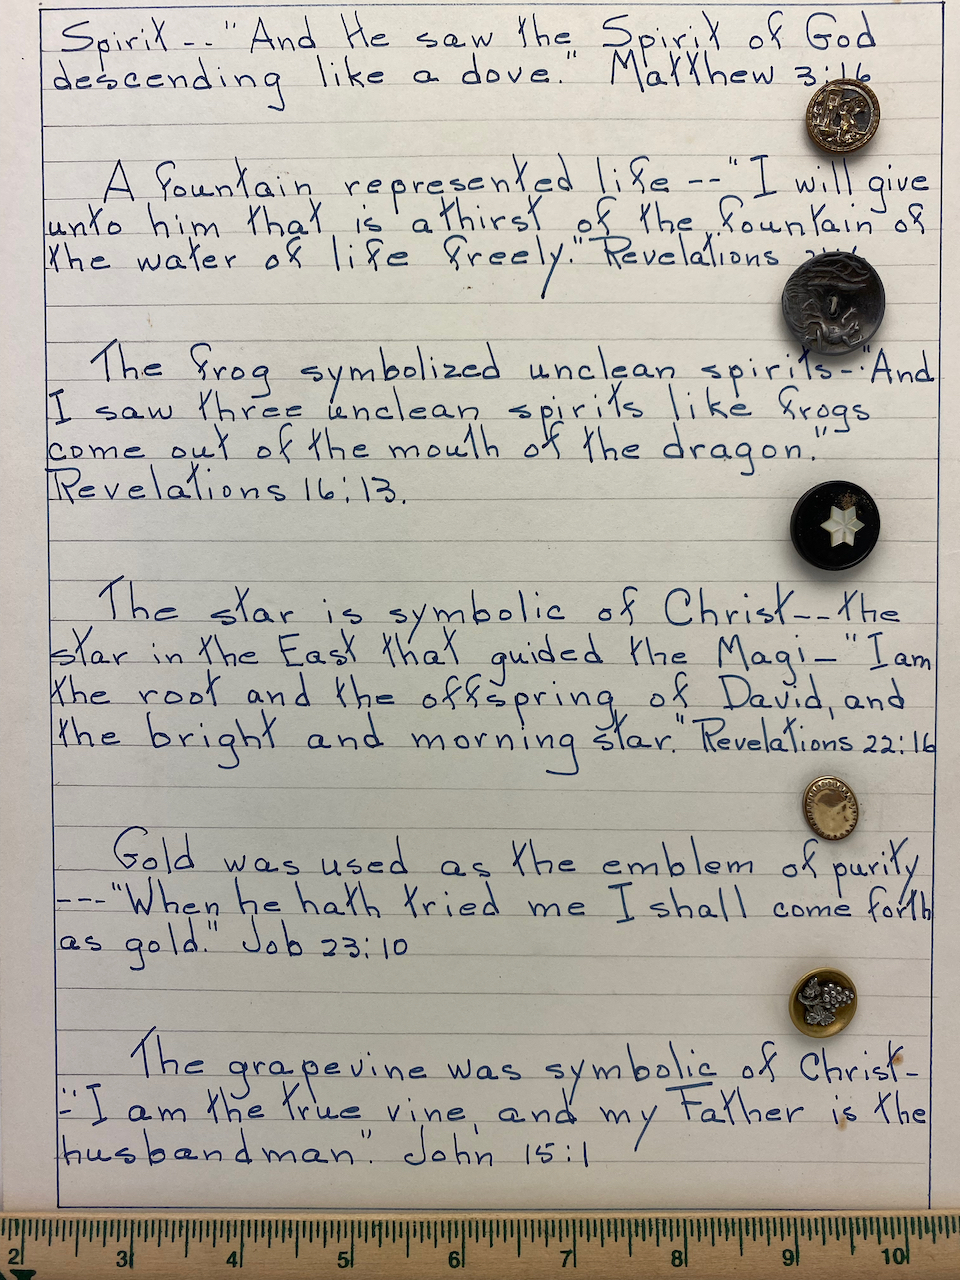 Spirit -- "And He saw the Spirit of God
descending like a dove." Matthew 3:16
A fountain represented life -- "I will give
unto him that is athirst of the fountain of
the water of life freely." Revelations
The frog symbolized unclean spirits -- "And
I saw three unclean spirits like frogs
come out of the mouth of the dragon."
Revelations 16:13.
The star is symbolic of Christ -- the
star in the East that guided the Magi - "I am
the root and the offspring of David, and
the bright and morning star." Revelations 22:16
Gold was used as the emblem of purity
--- "When he hath tried me I shall come forth
as gold." Job 23:10
The grapevine was symbolic of Christ -
- "I am the true vine, and my Father is the
husbandman." John 15:1
2 3 4 5 6 7 8 9 10